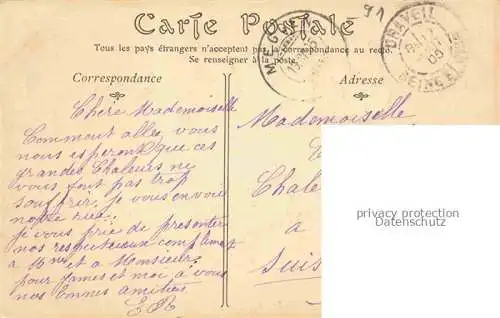 Carte Postale
Tous les pays étrangers n'acceptent pas la correspondance au recto.
Se renseigner à la poste.
Correspondance
Adresse
91
DRAVEIL
Chère Mademoiselle
Comment allez vous
nous esperons que ces
grandes Chaleurs ne
vous font pas trop
souffrir. je vous envoi
notre rue.
je vous prie de presenter
nos respectueux compliment
a Mme et a Monsieur.
pour James et moi à vous
nos bonnes amitiés
Mademoiselle
Chale
a
Suis
privacy protection
Datenschutz